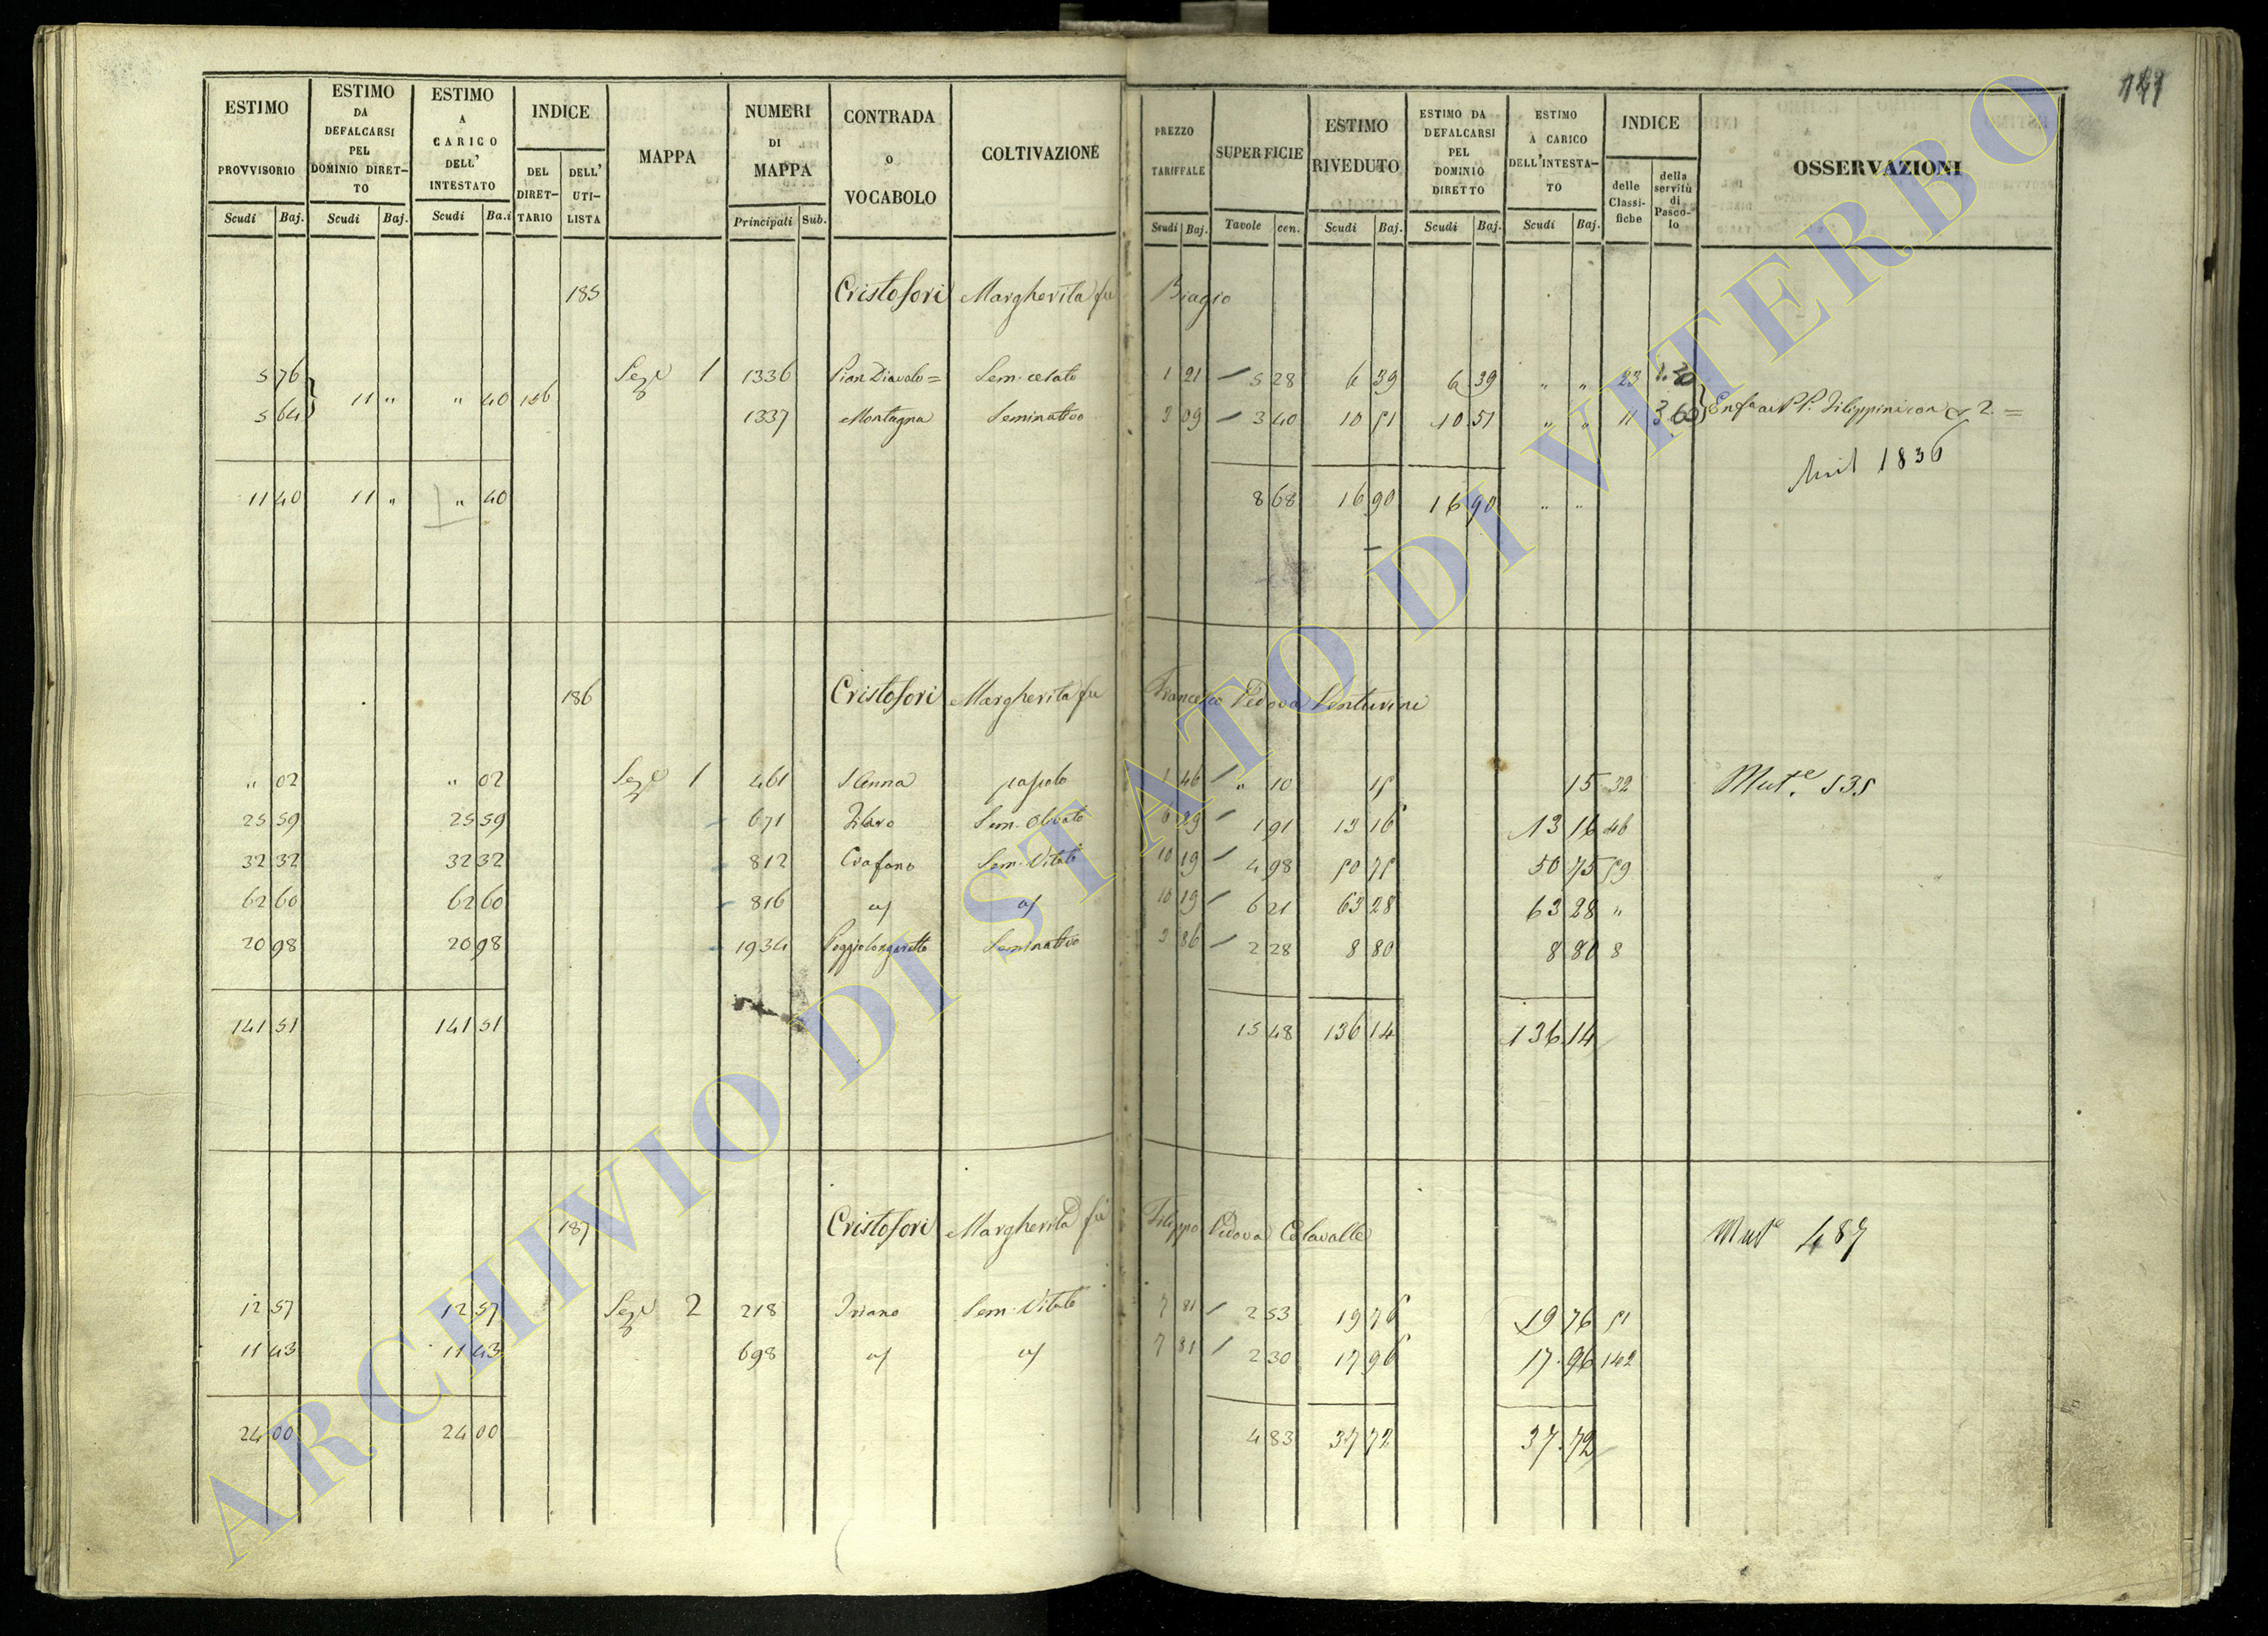 141
ESTIMO PROVVISORIO Scudi Baj.
ESTIMO DA DEFALCARSI PEL DOMINIO DIRETTO Scudi Baj.
ESTIMO A CARICO DELL' INTESTATO Scudi Ba.i
INDICE DEL DIRETTARIO DELL' UTILISTA
MAPPA
NUMERI DI MAPPA Principali Sub.
CONTRADA O VOCABOLO
COLTIVAZIONE
PREZZO TARIFFALE Scudi Baj.
SUPERFICIE Tavole cen.
ESTIMO RIVEDUTO Scudi Baj.
ESTIMO DA DEFALCARSI PEL DOMINIO DIRETTO Scudi Baj.
ESTIMO A CARICO DELL'INTESTATO Scudi Baj.
INDICE delle Classifiche della servitù di Pascolo
OSSERVAZIONI
185 Cristofori Margherita fu Biagio
5 76 Sez.e 1 1336 Pian Diavolo = Sem. cesato 1 21 5 28 6 39 6 39 " " 23
11 " " 40 156
5 64 1337 Montagna Seminativo 3 09 3 40 10 51 10 51 " " 11 3 60 Enf. ai PP. Filippini con 2 =
11 40 11 " " 40 8 68 16 90 16 90 " "
1836
186 Cristofori Margherita fu Francesco Vedova Venturini
" 02 " 02 Sez.e 1 461 S. Anna pascolo 1 46 " 10 15 15 32 Mut.e 535
25 59 25 59 671 Sem. Olivato 6 89 1 91 13 16 13 16 46
32 32 32 32 812 Crafano Sem. Vitato 10 19 4 98 50 75 50 75 59
62 60 62 60 816 10 19 6 21 63 28 63 28 "
20 98 20 98 1934 Seminativo 3 86 2 28 8 80 8 80 8
141 51 141 51 15 48 136 14 136 14
187 Cristofori Margherita fu Filippo Vedova Colavalle Mut.e 487
12 57 12 57 Sez.e 2 218 Sem. Vitato 7 81 2 53 19 76 19 76 51
11 43 11 43 698 7 81 2 30 17 96 17 96 142
24 00 24 00 4 83 37 72 37 72
ARCHIVIO DI STATO DI VITERBO